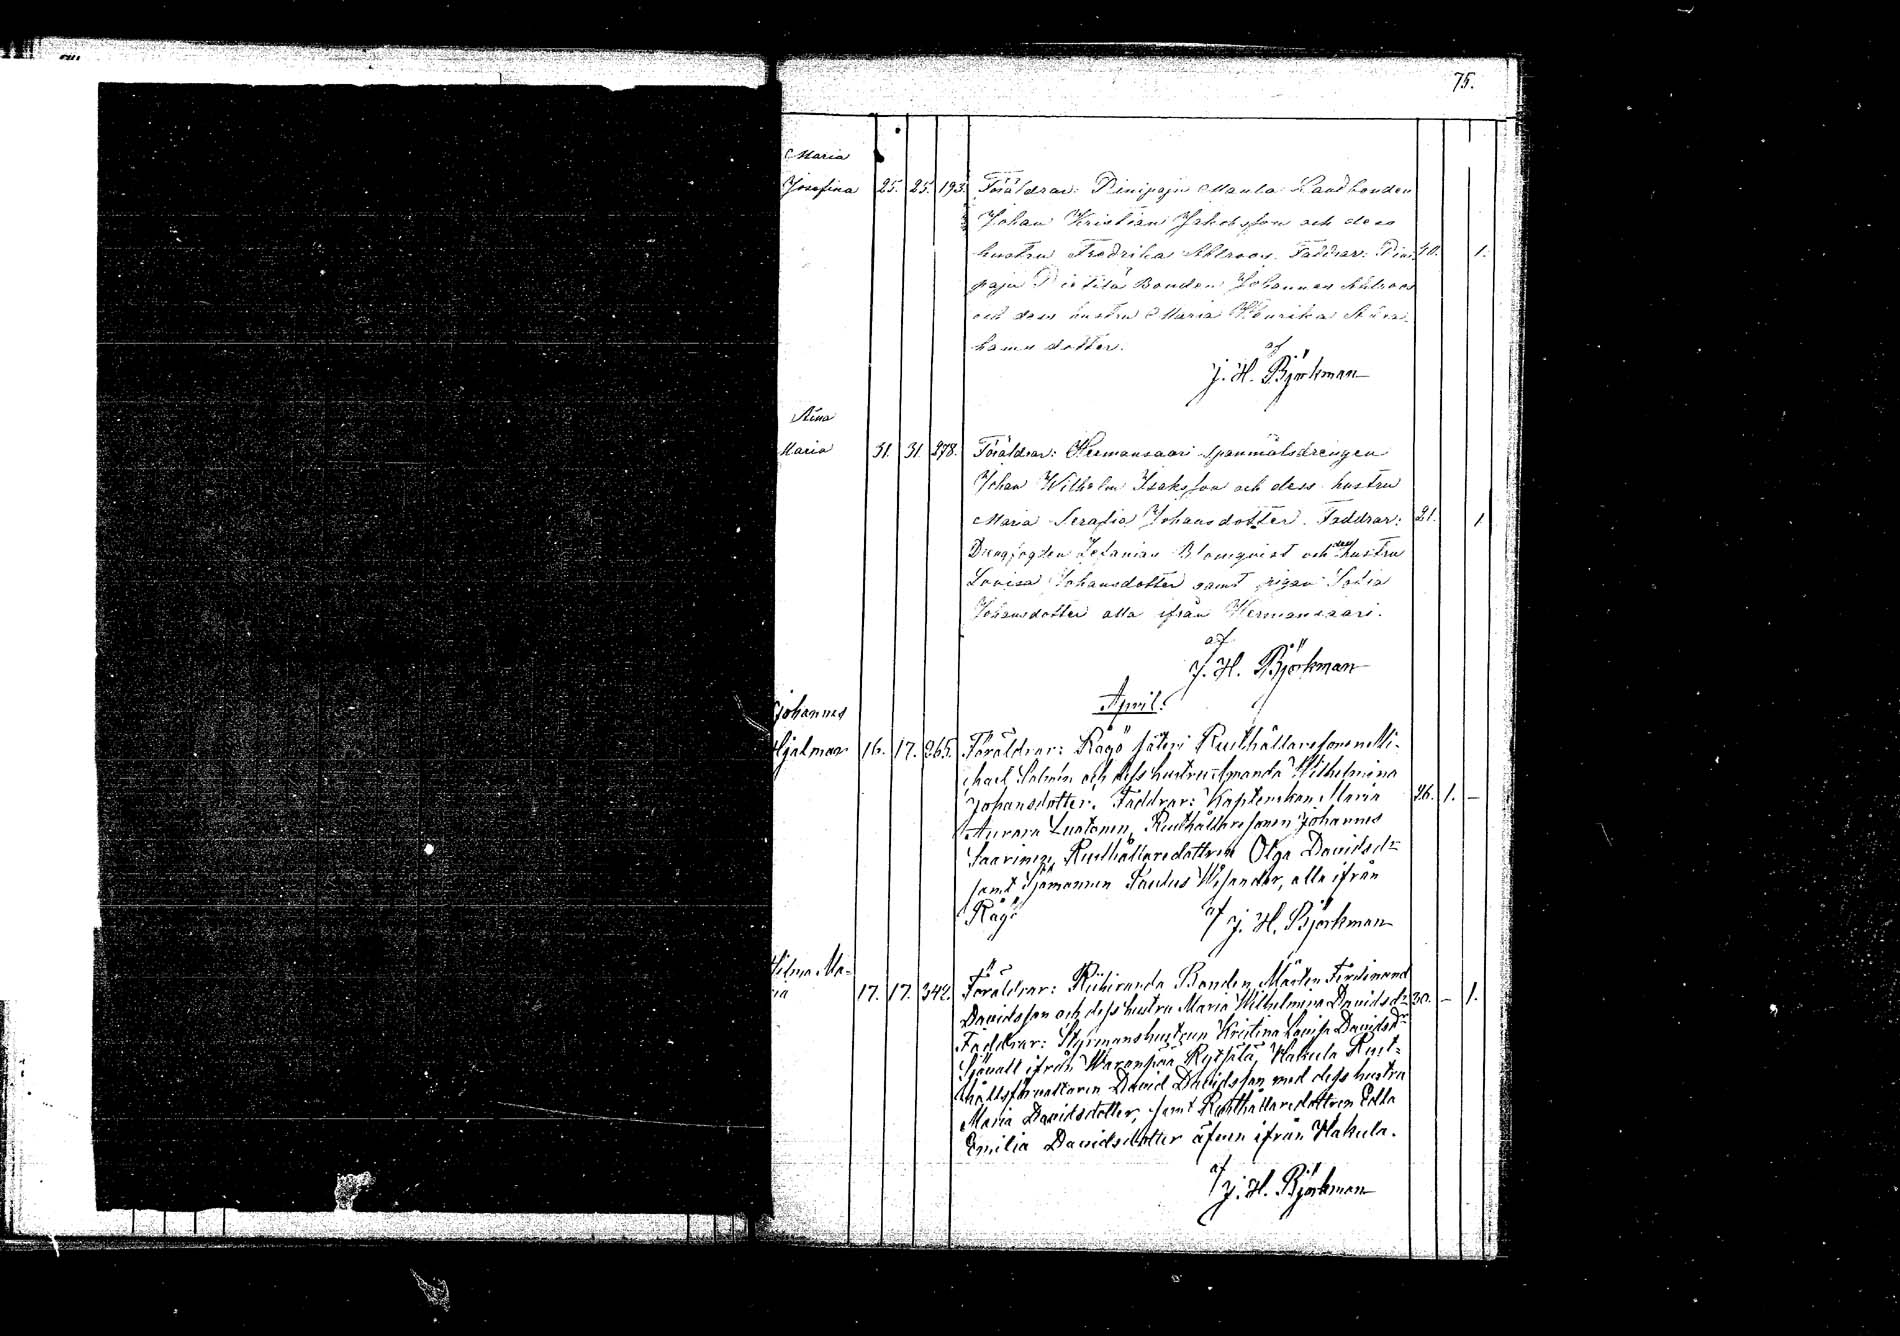 75.
Maria
Josefina 25. 25. 193. Föräldrar: Pinipaju Manla Landbonden
Johan Kristian Jakobsson och dess
hustru Fredrika Ahlroos. Faddrar: Pini- 40. 1.
paju Pietilä Bonden Johannes Ahlroos
och dess hustru Maria Henrika Abra-
hams dotter.
af
J. H. Björkman
Aina
Maria 31. 31. 278. Föräldrar: Hermansaari Spanmålsdrengen
Johan Wilhelm Isaksson och dess hustru
Maria Serafia Johansdotter. Faddrar: 21. 1
Drengfogden Zefanias Blomqvist och dess hustru
Lovisa Johansdotter samt pigan Sofia
Johansdotter alla ifrån Hermansaari.
af
J. H. Björkman
April.
Johannes
Hjalmar 16. 17. 265. Föräldrar: Rågö säteri Rusthållaresonen Mi-
chael Salmén och dess hustru Amanda Wilhelmina
Johansdotter. Faddrar: Kaptenskan Maria 26. 1. –
Aurora Luotonen, Rusthållaresonen Johannes
Saarinen, Rusthållaredottren Olga Davidsdr
samt Sjömannen Paulus Wisander, alla ifrån
Rågö af J. H. Björkman
Hilma Ma-
ria 17. 17. 342. Föräldrar: Riihiranda Bonden Mårten Ferdinand
Davidsson och dess hustru Maria Wilhelmina Davidsdr 30. – 1.
Faddrar: Styrmanshustrun Kristina Lovisa Davidsdr
Sjövall ifrån Waranpää Rytsälä, Hakula Rust-
hållsförvaltaren David Davidsson med dess hustru
Maria Davidsdotter, samt Rusthållaredottren Edla
Emilia Davidsdotter äfven ifrån Hakula.
af
J. H. Björkman